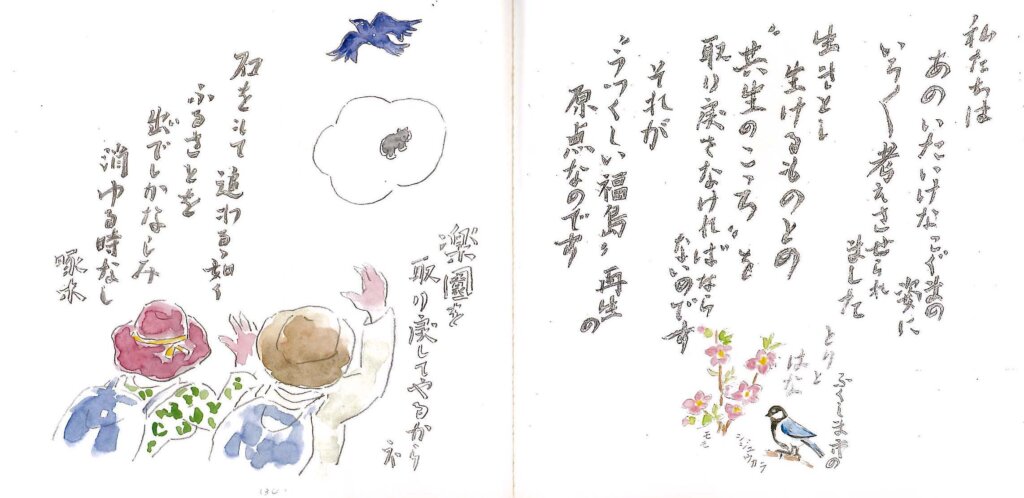 私たちは
あのいたいけなこぐまの
姿に
いろ〱考えさせられ
ました
生きとし
生けるものとの
“共生のこゝろ”を
取り戻さなければなら
ないのです
それが
“うつくしい福島”再生
の
原点なのです
ふくしま市の
とりと
はな
シジュウカラ
モモ
楽園を
取り戻してやるから
ネ
石をもて追わるゝ如く
ふるさとを
出でしかなしみ
消ゆる時なし
啄木